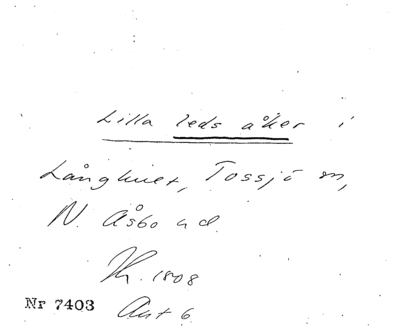 Lilla leds åker i
Långhult, Tossjö sn,
N. Åsbo hd.
Kh. 1808
Akt 6
Nr 7403